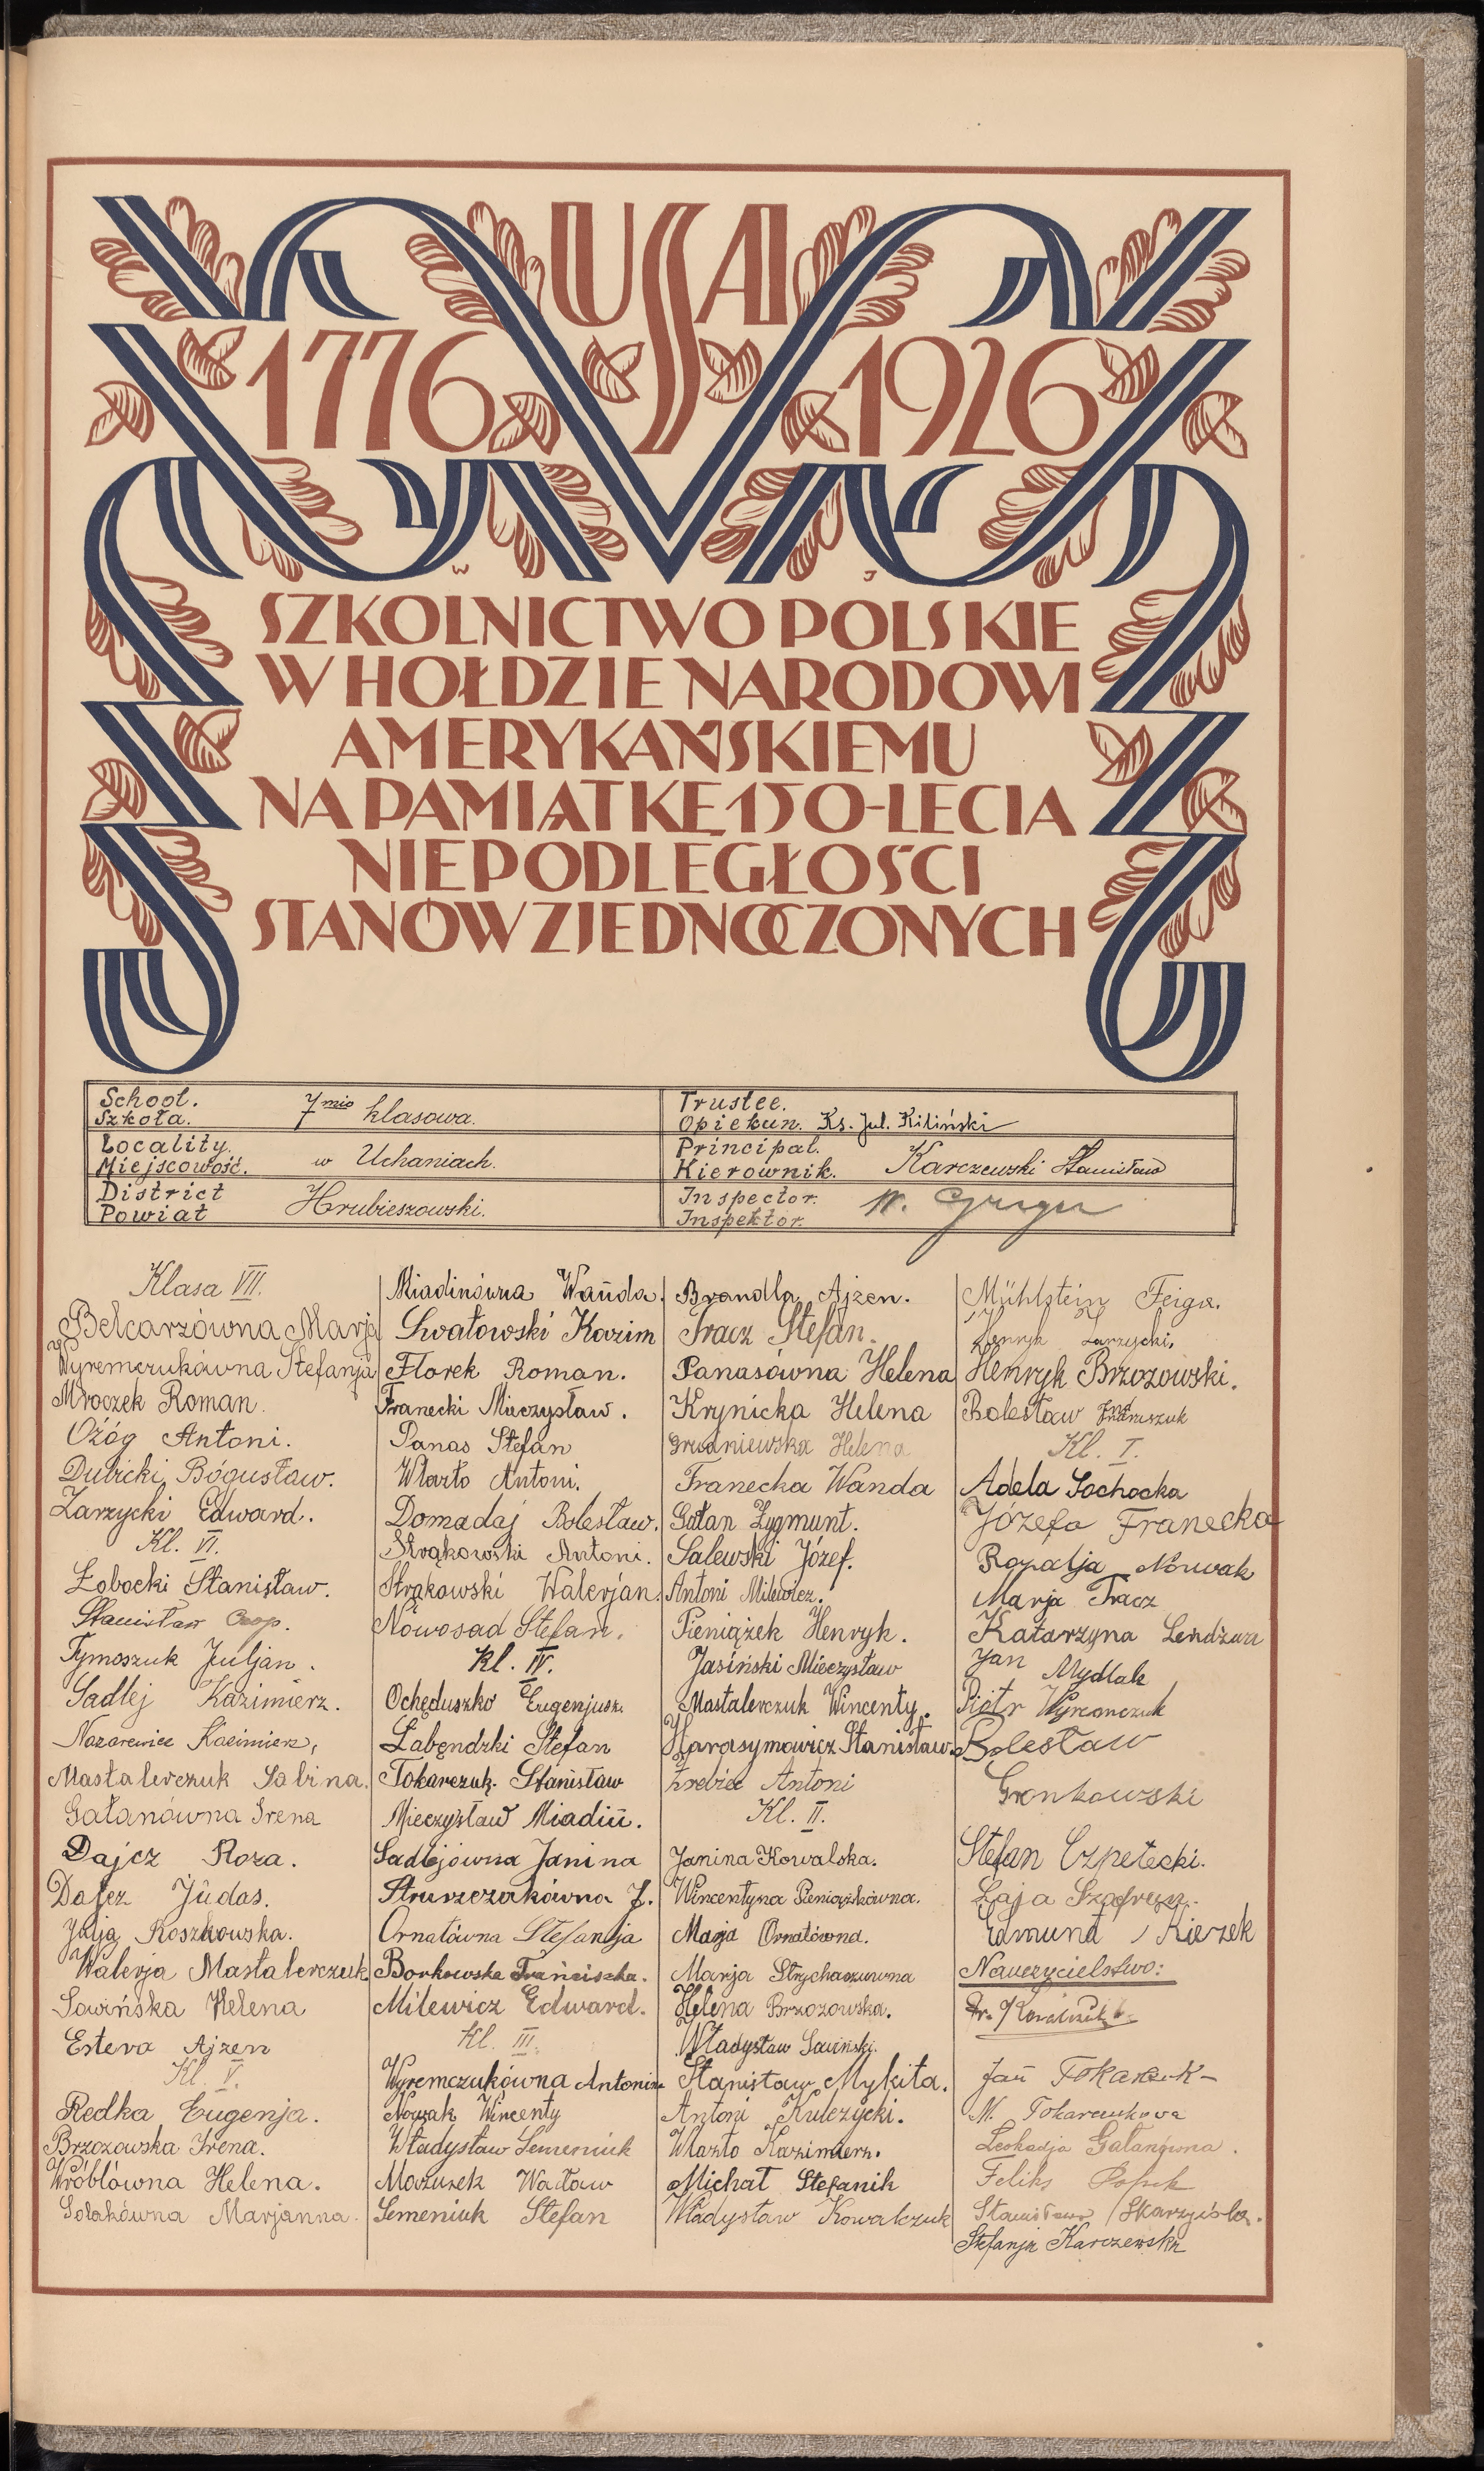 USA
1776 1926
W J
SZKOLNICTWO POLSKIE
W HOŁDZIE NARODOWI
AMERYKAŃSKIEMU
NA PAMIĄTKĘ 150-LECIA
NIEPODLEGŁOŚCI
STANÓW ZJEDNOCZONYCH
School.
Szkoła. 7mio klasowa.
Locality.
Miejscowość. w Uchaniach.
District
Powiat Hrubieszowski.
Trustee.
Opiekun. Ks. Jul. Kiliński
Principal.
Kierownik. Karczewski Stanisław
Inspector.
Inspektor.
Klasa VII.
Belcarzówna Marja
Wyremczukówna Stefanja
Mroczek Roman.
Ożóg Antoni.
Dubicki Bogusław.
Zarzycki Edward.
Kl. VI.
Łobocki Stanisław.
Stanisław
Tymoszuk Juljan.
Sadlej Kazimierz.
Nazarewicz Kazimierz,
Mastalerczuk Sabina.
Gałanówna Irena
Dajcz Roza.
Dajcz Judas.
Roszkowska.
Walerja Mastalerczuk
Sawińska Helena
Estera Ajzen
Kl. V.
Redka Eugenja.
Brzozowska Irena.
Wróblówna Helena.
Marjanna.
Miadinówna Wanda.
Swatowski Kazim
Florek Roman.
Franecki Mieczysław.
Panas Stefan
Wlazło Antoni.
Domadaj Bolesław.
Strąkowski Antoni.
Strąkowski Walerjan.
Nowosad Stefan.
Kl. IV.
Ochęduszko Eugenjusz.
Łabendzki Stefan
Tokarczuk. Stanisław
Mieczysław Miadin.
Sadlejówna Janina
Struszczakówna J.
Ornatówna Stefanja
Borkowska Franciszka.
Milewicz Edward.
Kl. III.
Wyremczukówna Antonina
Nowak Wincenty
Władysław Semeniuk
Mazurek Wacław
Semeniuk Stefan
Brandla Ajzen.
Tracz Stefan.
Panasówna Helena
Krynicka Helena
Grudniewska Helena
Franecka Wanda
Gałan Zygmunt.
Salewski Józef.
Antoni Milewicz.
Pieniążek Henryk.
Jasiński Mieczysław
Mastalerczuk Wincenty.
Harasymowicz Stanisław.
Źrebiec Antoni
Kl. II.
Janina Kowalska.
Wincentyna Pieniążkówna.
Marja Ornatówna.
Marja Strycharzuwna
Helena Brzozowska.
Władysław Sawiński.
Stanisław Mykita.
Antoni Kulczycki.
Wlazło Kazimierz.
Michał Stefanik
Władysław Kowalczuk
Mühlstein Feiga.
Henryk Zarzycki.
Henryk Brzozowski.
Bolesław
Kl. I.
Adela Sochocka
Józefa Franecka
Rozalja Nowak
Marja Tracz
Katarzyna Lendzwa
Jan Mydlak
Piotr Wyremczuk
Bolesław
Gronkowski
Stefan Czpetecki.
Łaja
Edmund Kierzek
Nauczycielstwo:
Jan Tokarczuk
M. Tokarczukowa
Leokadja Gałanówna.
Feliks Popik
Stanisława Skarzyńska.
Stefanja Karczewska